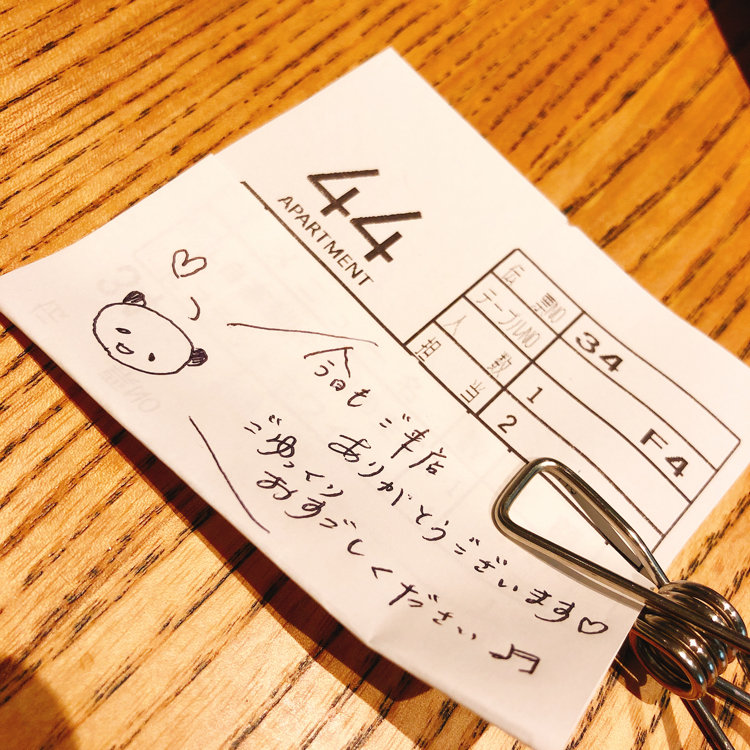 44
APARTMENT
伝票NO 34
テーブルNO F4
人数 1
担当 2
今日もご来店
ありがとうございます♡
ごゆっくり
おすごしください♬